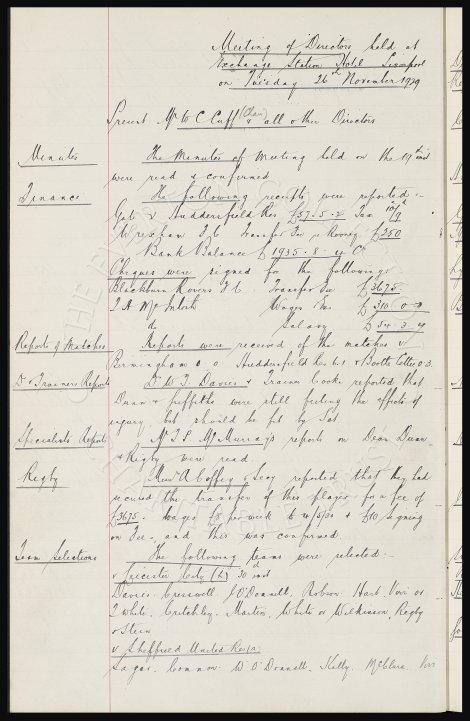 Meeting of Directors held at
Exchange Station Hotel Liverpool
on Tuesday 26th November 1929
Present Mr W C Cuff (Chair) & all other Directors
Minutes
The Minutes of Meeting held on the 19th inst
were read & confirmed
Finance
The following receipts were reported:-
Gate v Huddersfield Res £57.5.2 Tax
Wrexham F.C. Transfer Fee £250
Bank Balance £1935.8.
Cheques were signed for the following:-
Blackburn Rovers F.C. Transfer Fee £3675
T H McIntosh Wages &c £310 0 0
do Salary £34.3.4
Reports of Matches
Reports were received of the matches v
Birmingham Huddersfield Res & Bootle Celtic
Dr & Trainers Reports
Dr W F Davies & Trainer Cooke reported that
Dunn & Griffiths were still feeling the effects of
injury but should be fit by Sat
Specialists Reports
McMurray's reports on Dean Dunn
& Rigby were read
Rigby
Messrs A Coffey & reported that they had
secured the transfer of this player for a fee of
£3675. Wages £8 per week to & £10 signing
on Fee, and this was confirmed.
Team Selections
The following teams were selected:-
v Leicester City (h) 30th inst
Davies. Cresswell O'Donnell, Robson Hart. or
White. Critchley. Martin, White or Wilkinson, Rigby
& Stein
v Sheffield United Res
Sagar. Common. W O'Donnell. Kelly. McClure.